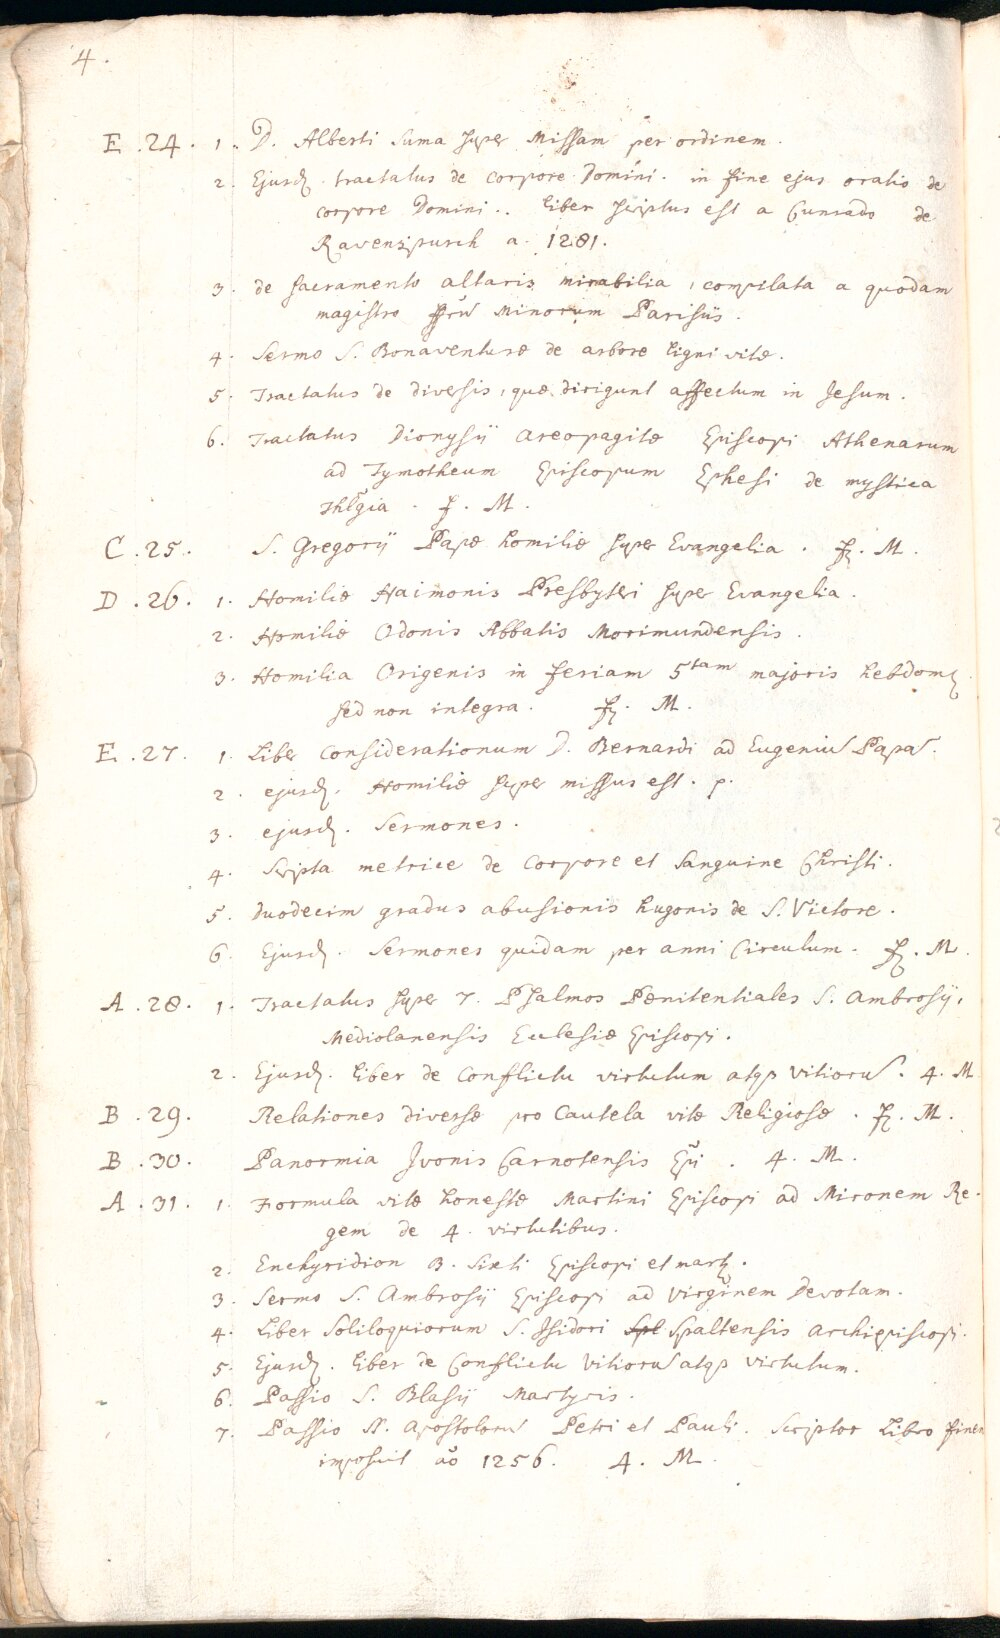 4.
E . 24 . 1. D. Alberti Suma super Missam per ordinem.
2. Ejusd. tractatus de corpore Domini. in fine ejus oratio de
corpore Domini.. liber scriptus est a Cunrado de
Ravenspurch a. 1281.
3. de sacramento altaris mirabilia, compilata a quodam
magistro minorum Parisiis.
4. Sermo S. Bonaventuræ de arbore ligni vitæ.
5. Tractatus de diversis, quæ dirigunt affectum in Jesum.
6. Tractatus Dionysij areopagitæ Episcopi Athenarum
ad Tymotheum Episcopum Ephesi de mystica
Thlgia . f. M.
C . 25 . S. Gregorij Papæ homiliæ super Evangelia . f. M.
D . 26 . 1. Homiliæ Haimonis Presbyteri super Evangelia.
2. Homiliæ Odonis Abbatis Morimundensis.
3. Homilia Origenis in feriam 5tam majoris hebdom.
sed non integra. f. M.
E . 27 . 1. Liber considerationum D. Bernardi ad Eugeniu Papa.
2. ejusd. Homiliæ super missus est. p.
3. ejusd. Sermones.
4. Scripta metrice de Corpore et Sanguine Christi.
5. duodecim gradus abusionis hugonis de S. Victore.
6. Ejusd. Sermones quidam per anni Circulum. f. M.
A . 28 . 1. Tractatus super 7. Psalmos Pœnitentiales S. Ambrosij,
Mediolanensis Ecclesiæ Episcopi.
2. Ejusd. liber de Conflictu virtutum atqз vitioru. 4. M.
B . 29. Relationes diversæ pro Cautela vitæ Religiosæ . f. M.
B . 30. Panormia Jvonis Carnotensis Epi . 4. M.
A . 31 . 1. Formula vitæ honestæ Martini Episcopi ad Mironem Re-
gem de 4. virtutibus.
2. Enchyridion B. Sixti Episcopi et mart.
3. Sermo S. Ambrosij Episcopi ad virginem Devotam.
4. Liber Soliloquiorum S. Isidori Spl Spaltensis archiepiscopi.
5. Ejusd. liber de Conflictu vitioru atqз virtutum.
6. Passio S. Blasij Martyris.
7. Passio SS. Apostoloru Petri et Pauli. Scriptor Libro finem
imposuit ao 1256. 4. M.